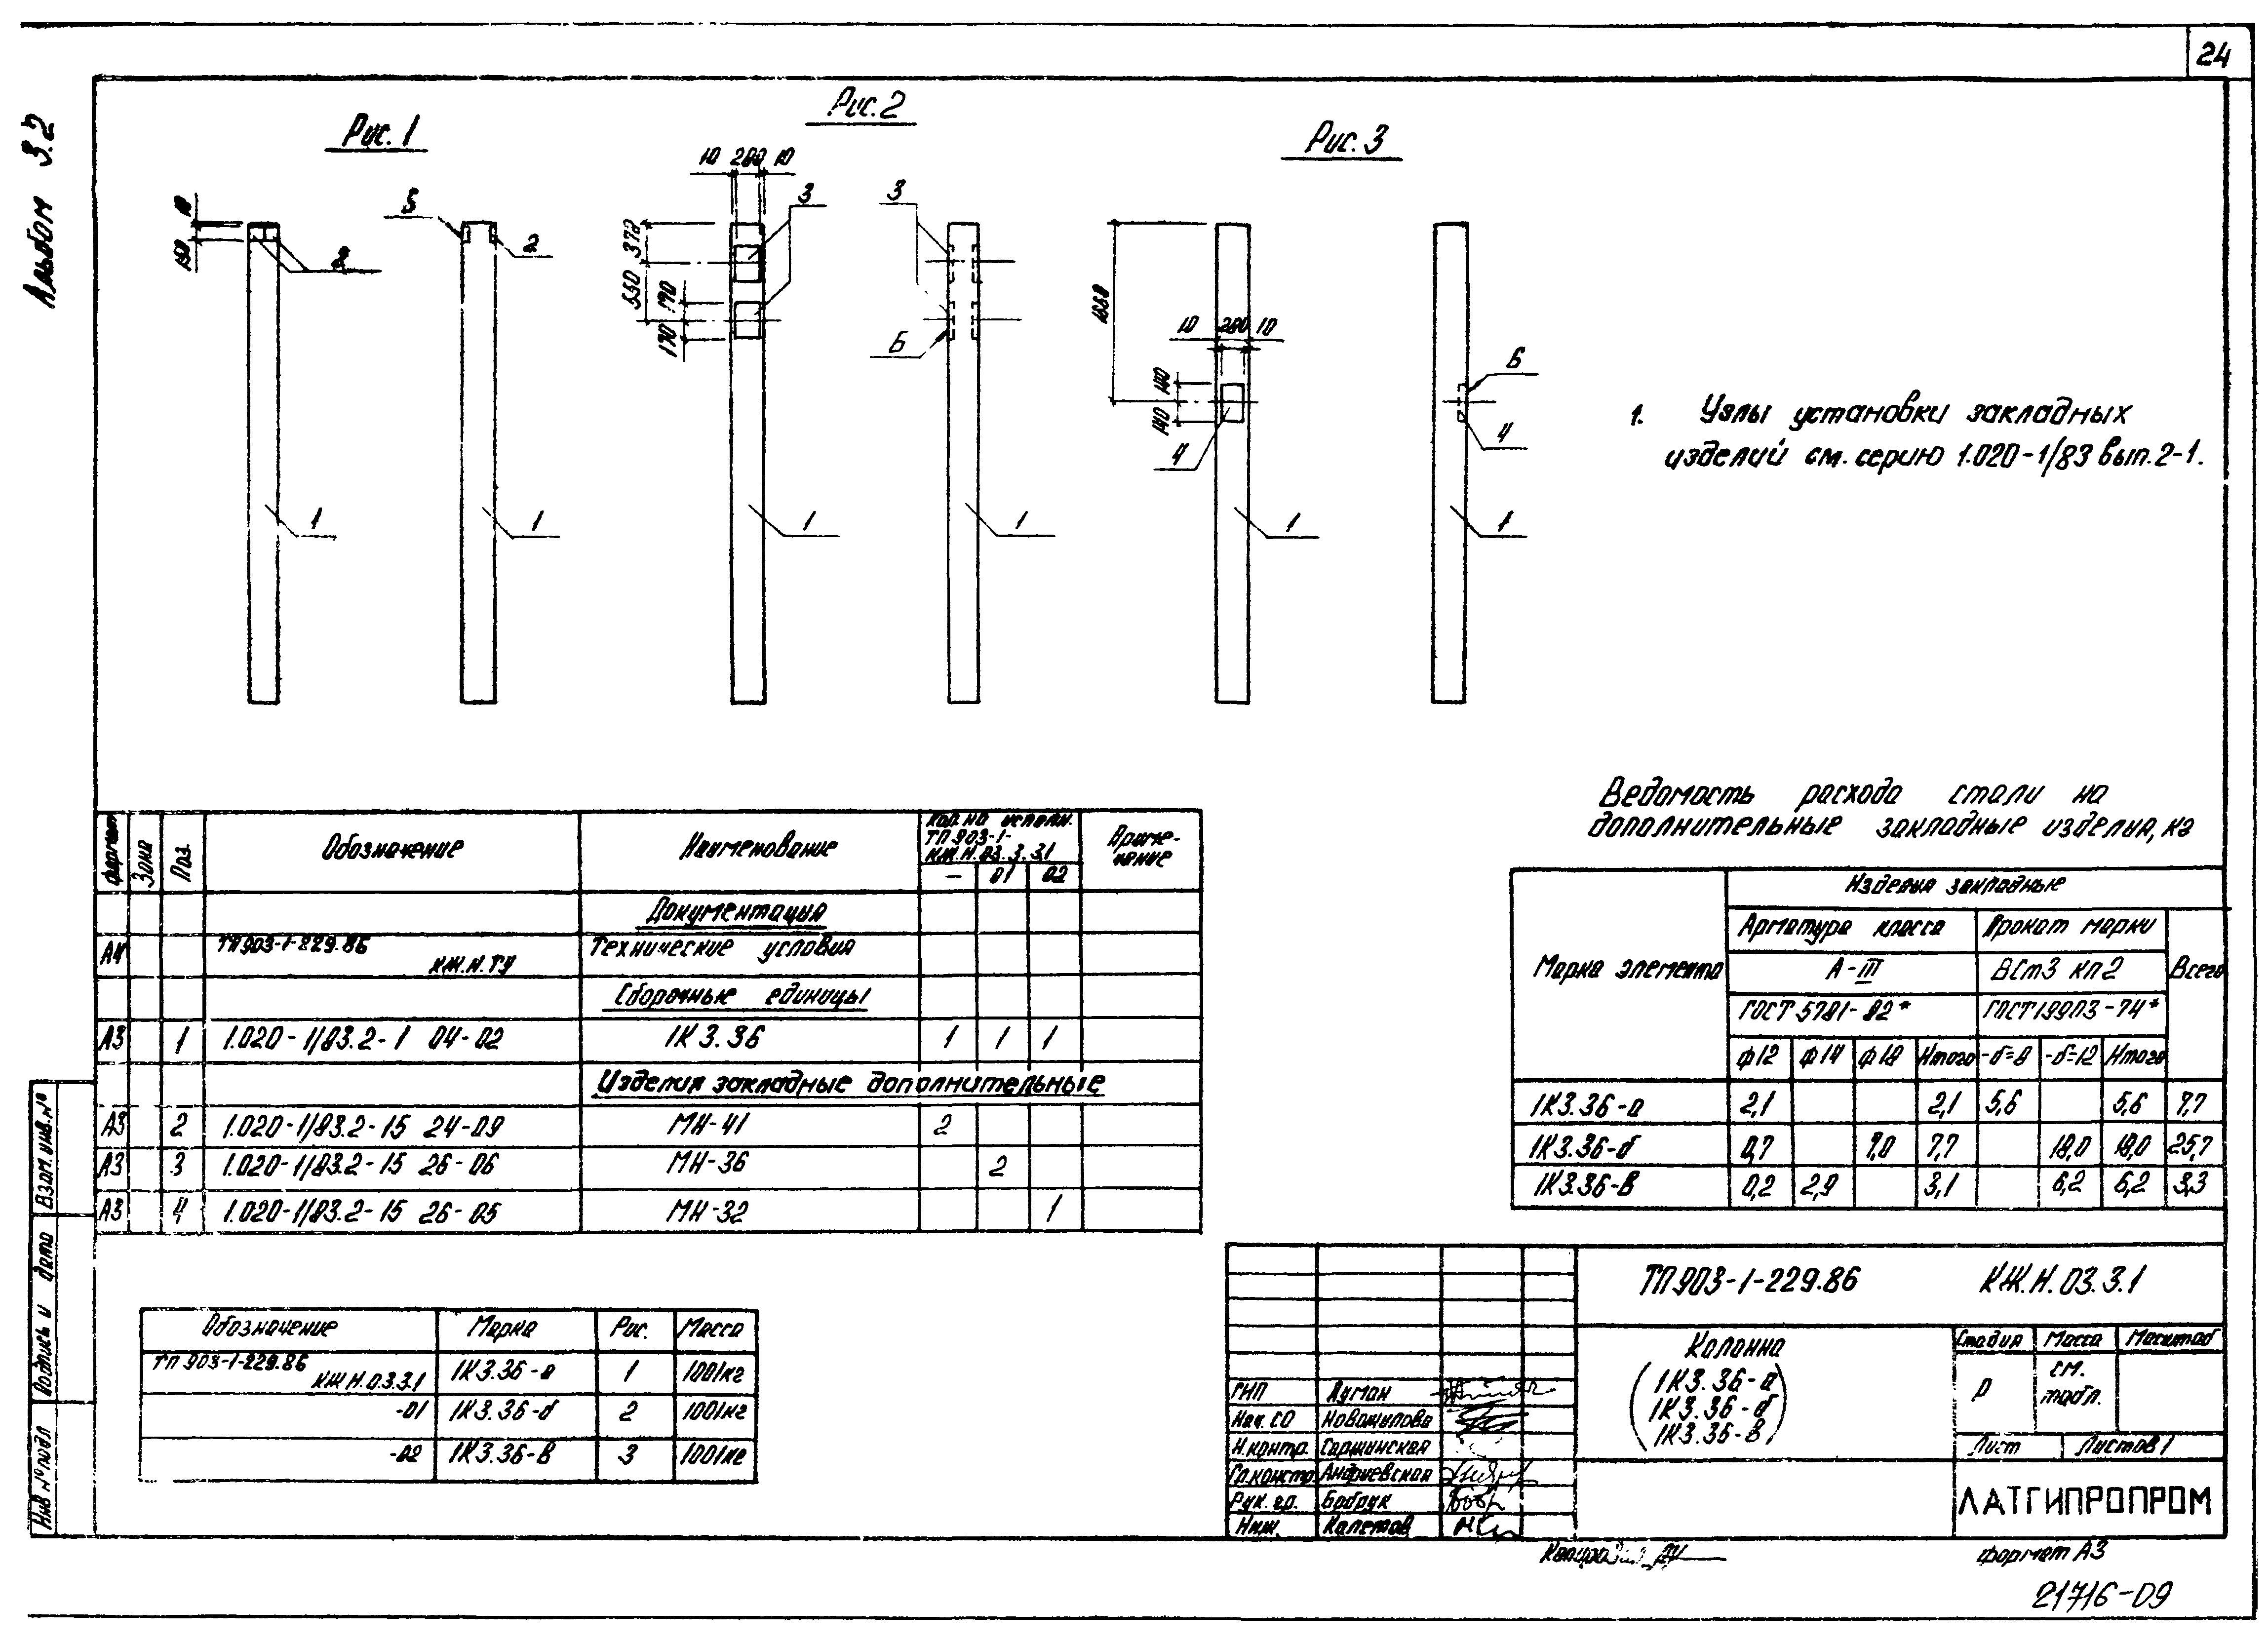 24
Альбом 3.2
Рис. 1
Рис. 2
Рис. 3
10
150
2
1
Б
2
1
10 200 10
372
550
170
170
3
1
3
Б
1
1660
10 200 10
140
140
4
1
Б
4
1
1. Узлы установки закладных
изделий см. серию 1.020-1/83 вып. 2-1.
Формат Зона Поз. Обозначение Наименование Кол. на исполн. ТП 903-1- КЖ.Н.03.3.1 Приме-чание
– 01 02
Документация
А4 ТП903-1-229.86 КЖ.Н.ТУ Технические условия
Сборочные единицы
А3 1 1.020-1/83.2-1 04-02 1К3.36 1 1 1
Изделия закладные дополнительные
А3 2 1.020-1/83.2-15 24-09 МН-41 2
А3 3 1.020-1/83.2-15 26-06 МН-36 2
А3 4 1.020-1/83.2-15 26-05 МН-32 1
Ведомость расхода стали на
дополнительные закладные изделия, кг
Марка элемента Изделия закладные
Арматура класса Прокат марки Всего
А-III ВСт3 кп2
ГОСТ 5781-82* ГОСТ 19903-74*
ф12 ф14 ф18 Итого -б=8 -б=12 Итого
1К3.36-а 2,1 2,1 5,6 5,6 7,7
1К3.36-б 0,7 7,0 7,7 18,0 18,0 25,7
1К3.36-в 0,2 2,9 3,1 6,2 6,2 3,3
Обозначение Марка Рис. Масса
ТП 903-1-229.86 КЖ.Н.03.3.1 1К3.36-а 1 1001кг
-01 1К3.36-б 2 1001кг
-02 1К3.36-в 3 1001кг
ТП903-1-229.86 КЖ.Н.03.3.1
Колонна
(1К3.36-а
1К3.36-б
1К3.36-в)
Стадия Масса Масштаб
Р см. табл.
Лист Листов 1
ЛАТГИПРОПРОМ
ГИП Думан
Нач. СО Новожилова
Н.контр. Саршинская
Гл.констр. Андриевская
Рук. гр. Бобрук
Инж. Калетов
Взам. инв. №
Подпись и дата
Инв. № подл
Копировал
формат А3
21716-09